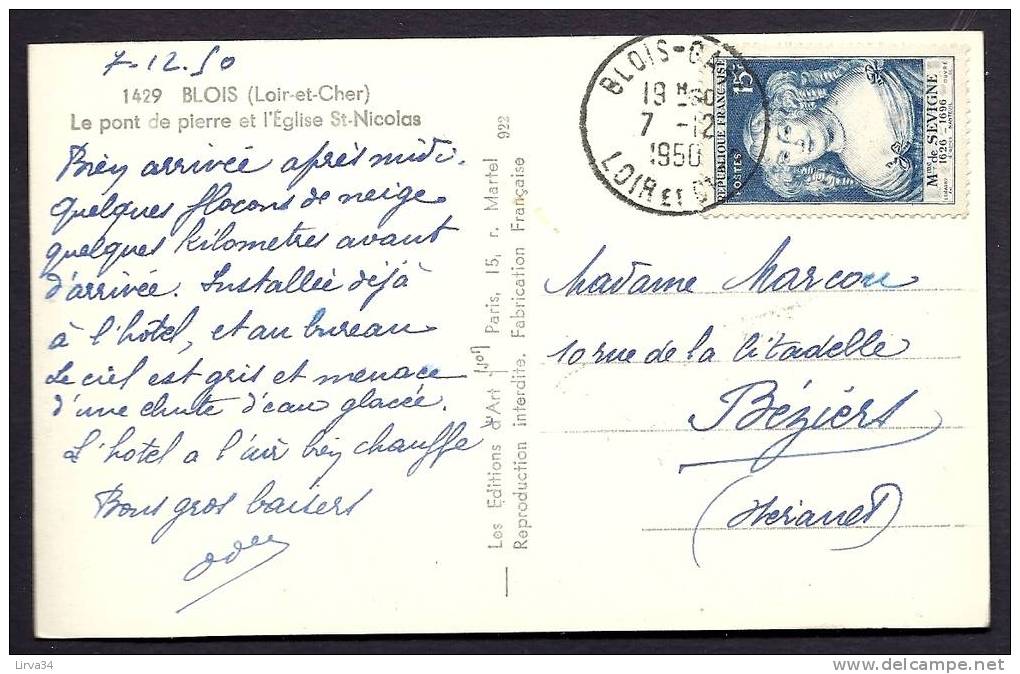 7-12.50
1429 BLOIS (Loir-et-Cher)
Le pont de pierre et l'Église St-Nicolas
Bien arrivée après midi.
Quelques flocons de neige
quelques kilometres avant
d'arrivée. Installée déjà
à l'hôtel, et au bureau
Le ciel est gris et menace
d'une chute d'eau glacée.
L'hotel a l'air bien chauffé
Bons gros baisers
Les Editions d'Art Yvon Paris, 15, r. Martel
Reproduction interdite. Fabrication Française
922
BLOIS-GA
19 H
7 -12
1950
LOIR ET CH
15F
REPUBLIQUE FRANÇAISE
POSTES
Mme de SÉVIGNÉ
1626 - 1696
Madame Marcou
10 rue de la Citadelle
Béziers
(Herault)
Lirva34
www.delcampe.net